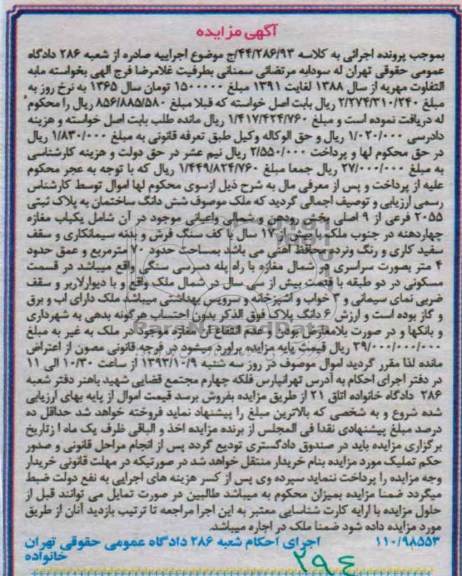 آگهی مزایده
بموجب پرونده اجرائی به کلاسه ۴۴/۲۸۶/۹۳/ج موضوع اجراییه صادره از شعبه ۲۸۶ دادگاه
عمومی حقوقی تهران له سودابه مرتضائی سمنانی بطرفیت غلامرضا فرج الهی بخواسته مابه
التفاوت مهریه از سال ۱۳۸۸ لغایت ۱۳۹۱ مبلغ ۱۵۰۰۰۰۰ تومان سال ۱۳۶۵ به نرخ روز به
مبلغ ۲/۲۷۴/۳۱۰/۲۴۰ ریال بابت اصل خواسته که قبلا مبلغ ۸۵۶/۸۸۵/۵۸۰ ریال را محکوم
له دریافت نموده است و مبلغ ۱/۴۱۷/۴۲۴/۷۶۰ ریال مانده طلب بابت اصل خواسته و هزینه
دادرسی ۱/۰۲۰/۰۰۰ ریال و حق الوکاله وکیل طبق تعرفه قانونی به مبلغ ۱/۸۳۰/۰۰۰ ریال
در حق محکوم لها و پرداخت ۲/۵۵۰/۰۰۰ ریال نیم عشر در حق دولت و هزینه کارشناسی
به مبلغ ۲۷/۰۰۰/۰۰۰ ریال جمعا مبلغ ۱/۴۴۹/۸۲۴/۷۶۰ ریال که با توجه به عجز محکوم
علیه از پرداخت و پس از معرفی مال به شرح ذیل ازسوی محکوم لها اموال توسط کارشناس
رسمی ارزیابی و توصیف اجمالی گردید که ملک موصوف شش دانگ ساختمان به پلاک ثبتی
۲۰۵۵ فرعی از ۹ اصلی بخش رودهن و شمالی واعیانی موجود در آن شامل یکباب مغازه
چهاردهنه در جنوب ملک با بیش از ۱۷ سال با کف سنگ فرش و بدنه سیمانکاری و سقف
سفید کاری و رنگ ونرده محافظ آهنی می باشد بمساحت حدود ۷۰ مترمربع و عمق حدود
۴ متر بصورت سراسری در شمال مغازه با راه پله دسرسی سنگی واقع میباشد در قسمت
مسکونی در دو طبقه با قدمت بیش از سی سال در شمال ملک واقع و با دیوارلاربر و سقف
ضربی نمای سیمانی و ۳ خواب و آشپزخانه و سرویس بهداشتی میباشد ملک دارای آب و برق
و گاز بوده است و ارزش ۶ دانگ پلاک فوق الذکر بدون احتساب هرگونه بدهی به شهرداری
و بانکها و در صورت بلامعارض بودن و عدم انتفاع آن مغازه موجود در ملک به غیر به مبلغ
۳۹/۰۰۰/۰۰۰/۰۰۰ ریال قیمت پایه مزایده برآورد میشود در فرجه قانونی مصون از اعتراض
مانده لذا مقرر گردید اموال موصوف در روز سه شنبه ۱۳۹۳/۱۰/۹ از ساعت ۱۰/۳۰ الی ۱۱
در دفتر اجرای احکام به آدرس تهرانپارس فلکه چهارم مجتمع قضایی شهید باهنر دفتر شعبه
۲۸۶ دادگاه خانواده اتاق ۲۱ از طریق مزایده بفروش برسد قیمت اموال از پایه بهای ارزیابی
شده شروع و به شخصی که بالاترین مبلغ را پیشنهاد نماید فروخته خواهد شد حداقل ده
درصد مبلغ پیشنهادی نقدا فی المجلس از برنده مزایده اخذ و الباقی ظرف یک ماه از تاریخ
برگزاری مزایده باید در صندوق دادگستری تودیع گردد پس از انجام مراحل قانونی و صدور
حکم تملیک مورد مزایده بنام خریدار منتقل خواهد شد در صورتیکه در مهلت قانونی خریدار
وجه مزایده را پرداخت ننماید سپرده وی پس از کسر هزینه های اجرایی به نفع دولت ضبط
میگردد ضمنا مزایده بمیزان محکوم به میباشد طالبین در صورت تمایل می توانند قبل از
حلول مزایده با ارایه کارت شناسایی معتبر به این اجرا مراجعه تا ترتیب بازدید آنان از طریق
مورد مزایده داده شود ضمنا ملک در اجاره میباشد.
۱۱۰/۹۸۵۵۳ اجرای احکام شعبه ۲۸۶ دادگاه عمومی حقوقی تهران
خانواده
۲۹۴